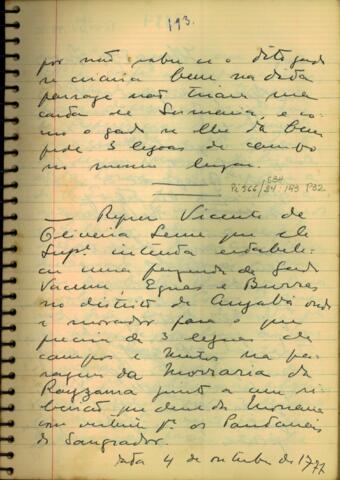 193.
por não saber se o dito gado
se criaria bem na dita
paragem não tirara sua
carta de Sesmaria, e co-
mo o gado se lhe dá bem
pede 3 legoas de campo
no mesmo lugar.
Pi 566/534 84: 193 P32
— Vicente de
Oliveira Leme que elle
Supe. intenta estabele-
cer uma fazenda de gado
Vacum, Eguas e Burros
no districto de Cuyabá onde
é morador para o que
precisa de 3 legoas de
campos e Mattos na pa-
ragem da Morraria da
junto a um ri-
beirão que desce da
com vertentes pa. os Pantanaes
do Sangrador.
Data 4 de outubro de 1777